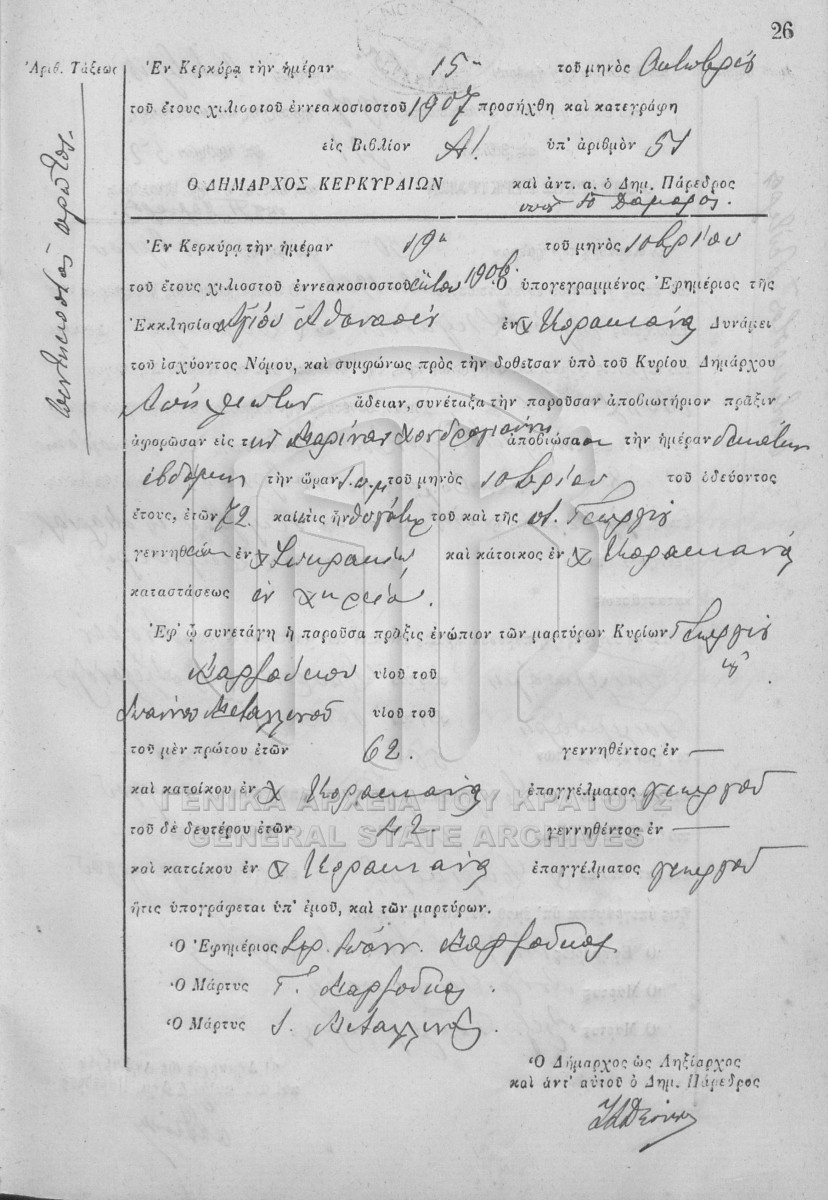 26
Ἀριθ. Τάξεως
πεντηκοστὸς πρῶτος.
Ἐν Κερκύρᾳ τὴν ἡμέραν 15 τοῦ μηνὸς
τοῦ ἔτους χιλιοστοῦ ἐννεακοσιοστοῦ 1907 προσήχθη καὶ κατεγράφη
εἰς Βιβλίον Α1. ὑπ' ἀριθμὸν 51
Ο ΔΗΜΑΡΧΟΣ ΚΕΡΚΥΡΑΙΩΝ καὶ ἀντ. α. ὁ Δημ. Πάρεδρος
Ἐν Κερκύρᾳ τὴν ἡμέραν τοῦ μηνὸς 10βρίου
τοῦ ἔτους χιλιοστοῦ ἐννεακοσιοστοῦ ἕκτου 1906 ὑπογεγραμμένος Ἐφημέριος τῆς
Ἐκκλησίας Ἁγίου Ἀθανασίου ἐν Χ Κορακιάνα Δυνάμει
τοῦ ἰσχύοντος Νόμου, καὶ συμφώνως πρὸς τὴν δοθεῖσαν ὑπὸ τοῦ Κυρίου Δημάρχου
ἄδειαν, συνέταξα τὴν παροῦσαν ἀποβιωτήριον πρᾶξιν
ἀφορῶσαν εἰς τὴν Μαρίναν Χονδρογιάννη ἀποβιώσασαν τὴν ἡμέραν δεκάτην
ἑβδόμην τὴν ὥραν 1 π.μ. τοῦ μηνὸς 10βρίου τοῦ ὁδεύοντος
ἔτους, ἐτῶν 72 καὶ τις ἦν θυγάτηρ τοῦ καὶ τῆς Γεωργίου
γεννηθεῖσα ἐν Χ Σωκρακίου καὶ κάτοικος ἐν Χ Κορακιάνα
καταστάσεως ἐν χηρείᾳ.
Ἐφ' ᾧ συνετάγη ἡ παροῦσα πρᾶξις ἐνώπιον τῶν μαρτύρων Κυρίων Γεωργίου
υἱοῦ τοῦ
Ἰωάννου Μεταλληνοῦ υἱοῦ τοῦ
τοῦ μὲν πρώτου ἐτῶν 62. γεννηθέντος ἐν —
καὶ κατοίκου ἐν Χ Κορακιάνα ἐπαγγέλματος γεωργοῦ
τοῦ δὲ δευτέρου ἐτῶν 42 γεννηθέντος ἐν —
καὶ κατοίκου ἐν Χ Κορακιάνα ἐπαγγέλματος γεωργοῦ
ἥτις ὑπογράφεται ὑπ' ἐμοῦ, καὶ τῶν μαρτύρων.
Ὁ Ἐφημέριος
Ὁ Μάρτυς Γ.
Ὁ Μάρτυς Ι. Μεταλληνός.
Ὁ Δήμαρχος ὡς Ληξίαρχος
καὶ ἀντ' αὐτοῦ ὁ Δημ. Πάρεδρος
ΓΕΝΙΚΑ ΑΡΧΕΙΑ ΤΟΥ ΚΡΑΤΟΥΣ
GENERAL STATE ARCHIVES